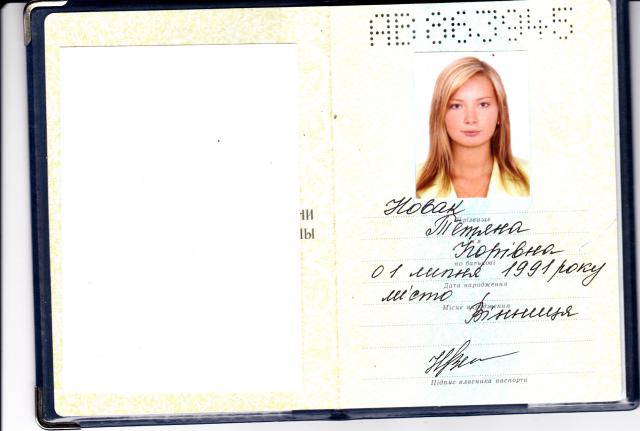 АВ863945
НИ
Новак
Прізвище
Тетяна
по батькові
01 липня 1991 року
Дата народження
місто
Місце народження
Вінниця
Підпис власника паспорта